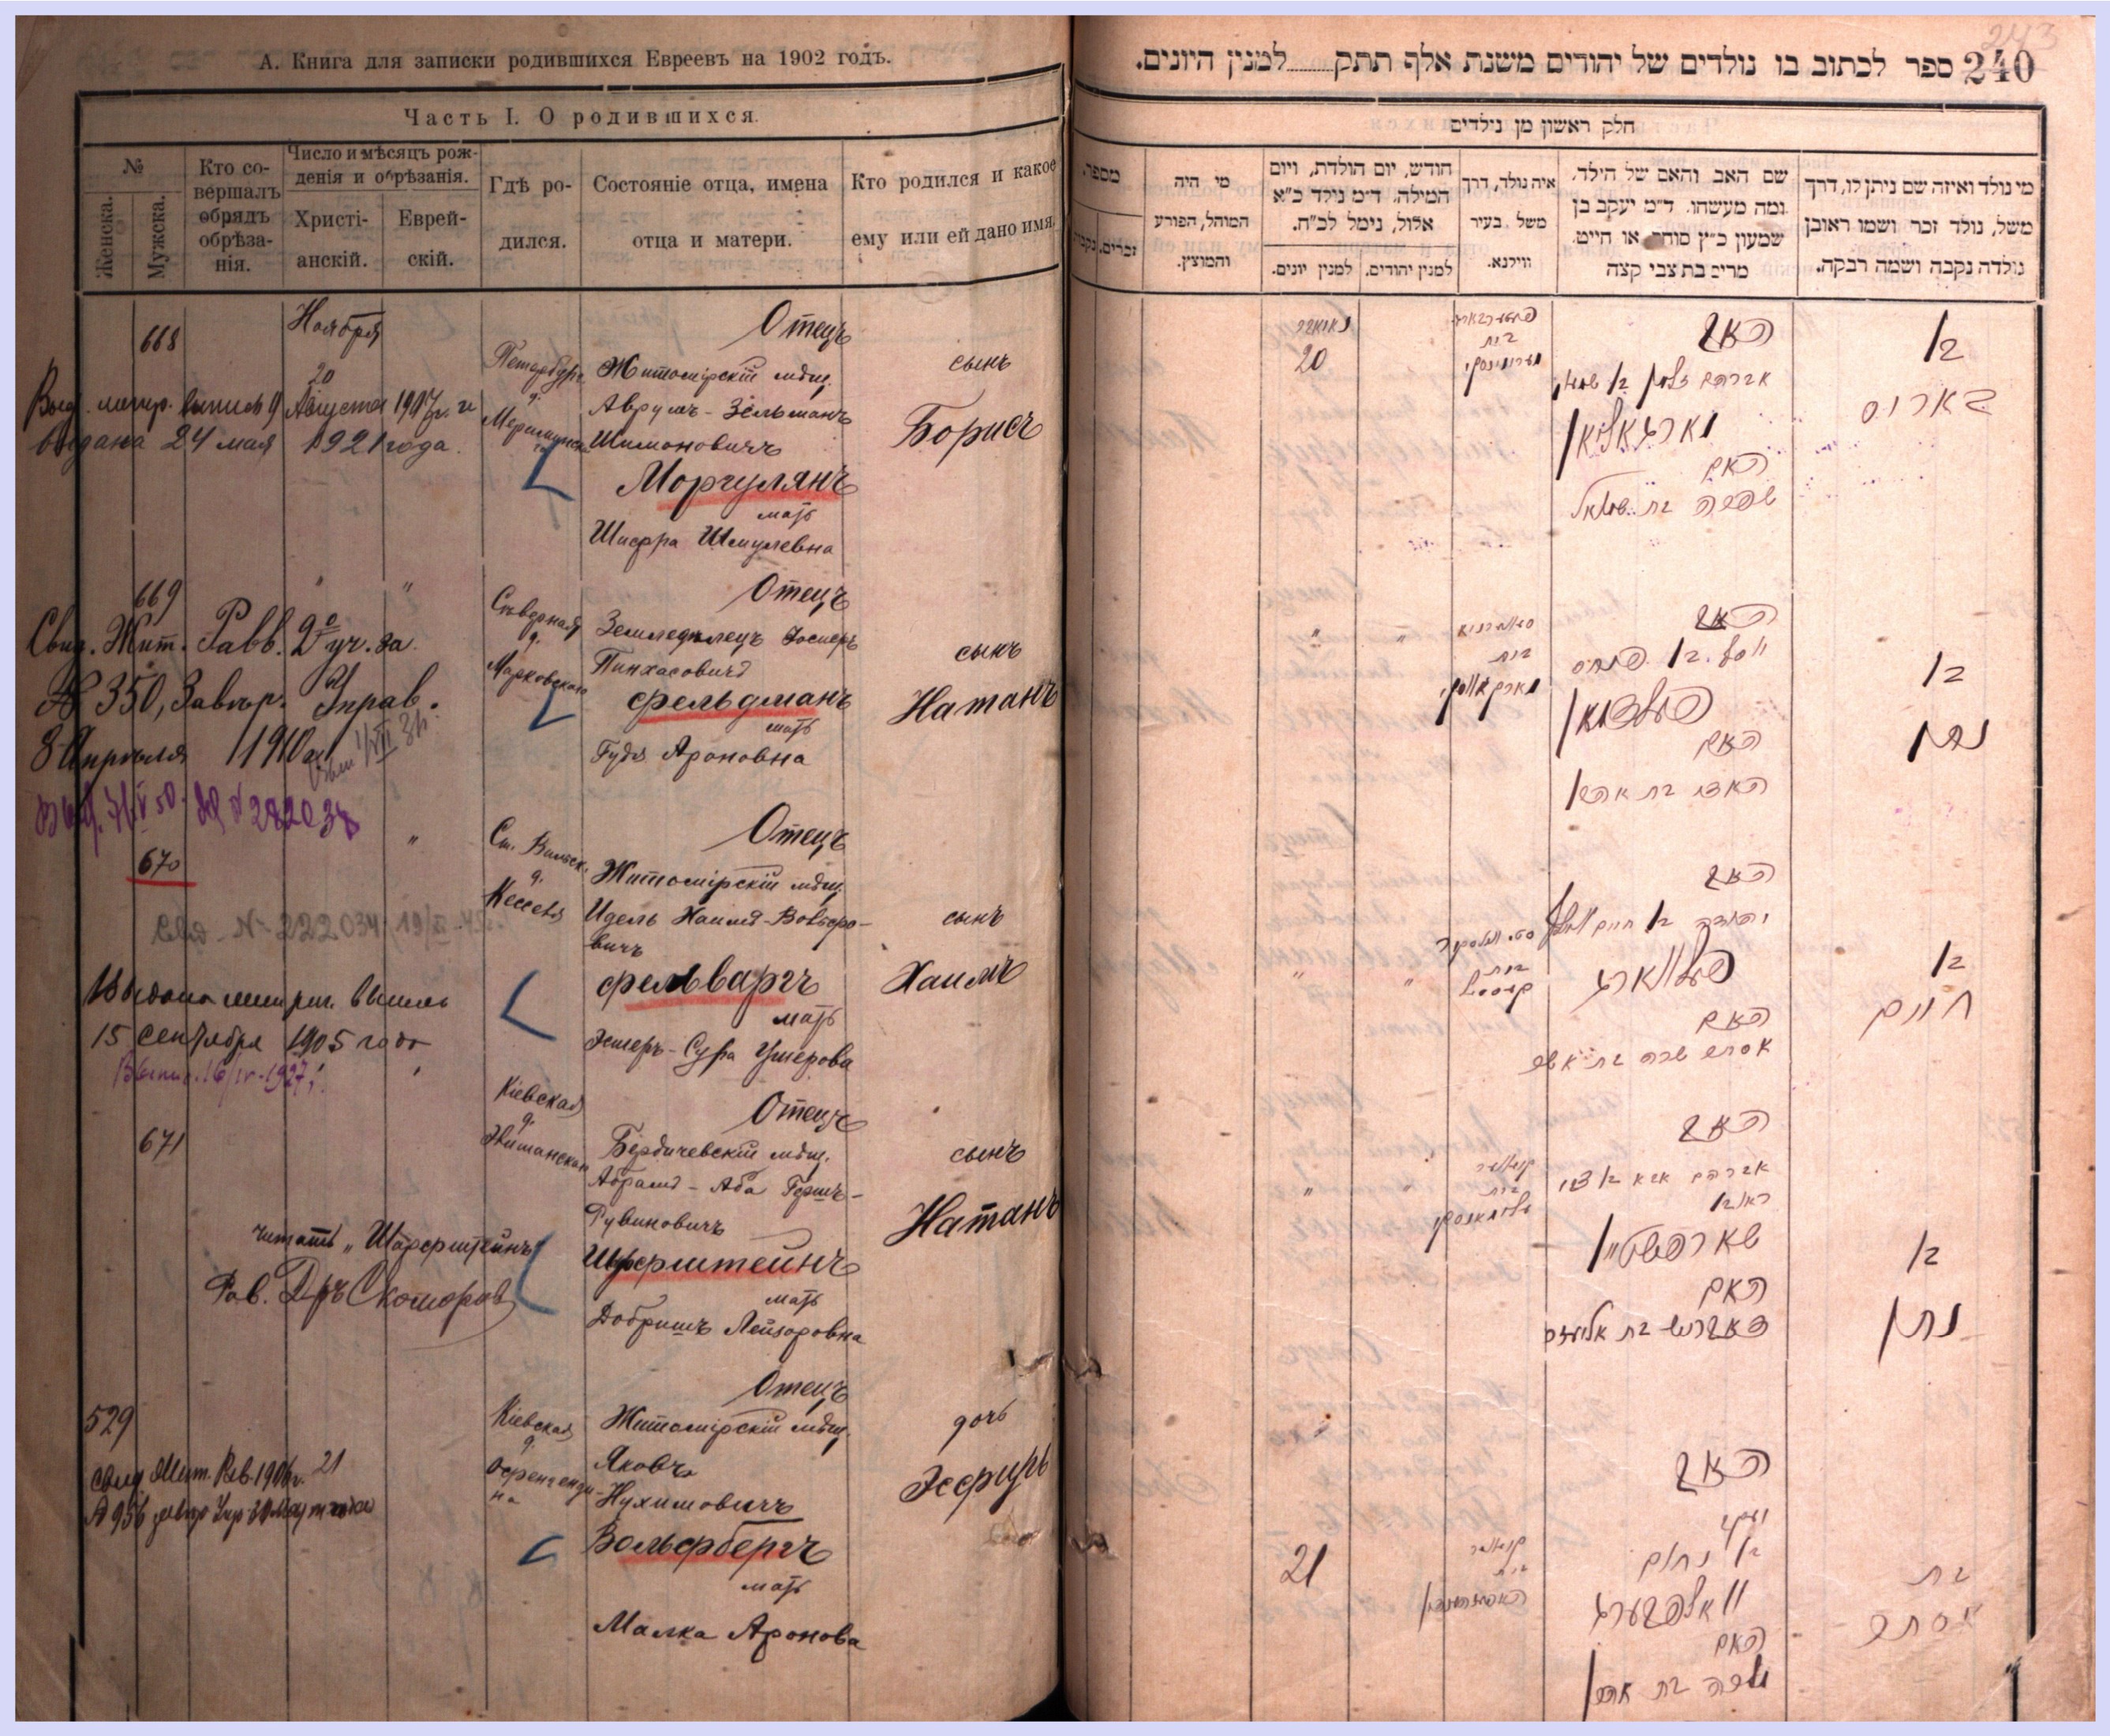 А. Книга для записки родившихся Евреевъ на 1902 годъ.
Часть I. О родившихся.
№
Женска.
Мужска.
Кто со-
вершалъ
обрядъ
обрѣза-
нія.
Число и мѣсяцъ рож-
денія и обрѣзанія.
Христі-
анскій.
Еврей-
скій.
Гдѣ ро-
дился.
Состояніе отца, имена
отца и матери.
Кто родился и какое
ему или ей дано имя.
668
Ноября
20
Выд. метр. выпись 9 Августа 1907 г. и
выдана 24 мая 1921 года.
Петербург.
д.
Отецъ
Житомірскій мѣщ.
Аврумъ-Зельманъ
Шимоновичъ
Моргулянъ
мать
Шифра Шмулевна
сынъ
Борисъ
669
"
Свид. Жит. Равв. 2го уч. за
№ 350, Завѣр. Управ.
8 Апрѣля 1910 г.
№ 282038
Сѣверная
д.
Марковской
Отецъ
Земледѣлецъ Иосперъ
Пинхасовичъ
Фельдманъ
мать
Гудя Ароновна
сынъ
Натанъ
670
"
№ 222034
Выдана метрич. выпись
15 сентября 1905 года
Ст. Вильск.
д.
Отецъ
Житомірскій мѣщ.
Идель Хаимъ-Вольфо-
вичъ
Фельваргъ
мать
Эстеръ-Сура Ушерова
сынъ
Хаимъ
671
читать „Шарфштейнъ"
Рав. Др. Скоморов
Кіевская
д.
Отецъ
Бердичевскій мѣщ.
Абрамъ-Аба Гершъ-
Рувиновичъ
мать
Добришъ Лейзоровна
сынъ
Натанъ
529
21
Свид. Жит. Рав. 1906 г.
№ 956
Кіевская
д.
Отецъ
Житомірскій мѣщ.
Яковъ
Нухимовичъ
Вольфбергъ
мать
Малка Аронова
дочь
Эсфирь
243
240
ספר לכתוב בו נולדים של יהודים משנת אלף תתק........למנין היונים.
חלק ראשון מן נילדים
מי נולד ואיזה שם ניתן לו, דרך
משל, נולד זכר ושמו ראובן
נולדה נקבה ושמה רבקה.
שם האב והאם של הילד.
ומה מעשהו. ד"מ יעקב בן
שמעון כ"ץ סוחר או חייט.
מרים בת צבי קצה
איה נולד, דרך
משל. בעיר
ווילנא.
חודש, יום הולדת, ויום
המילה. ד"מ נילד כ"א
אלול, נימל לכ"ח.
למנין יהודים.
למנין יונים.
מי היה
המוהל, הפורע
והמוצץ.
מספר.
זכרים.
נקבות
האב
אברהם זלמן בן שמעון
מארגאליאן
האם
שפרה בת שמואל
20
בן
בארוס
האב
יוסף בן פנחס
פעלדמאן
האם
בן
נתן
האב
יהודה בן חיים וואלף
פעלווארג
האם
אסתר שרה בת אשר
בן
חיים
האב
אברהם אבא בן צבי
ראובן
שארפשטיין
האם
דאברוש בת אליעזר
בן
נתן
האב
יעקב
בן נחום
וואלפבערג
האם
מלכה בת אהרן
21
בת
אסתר